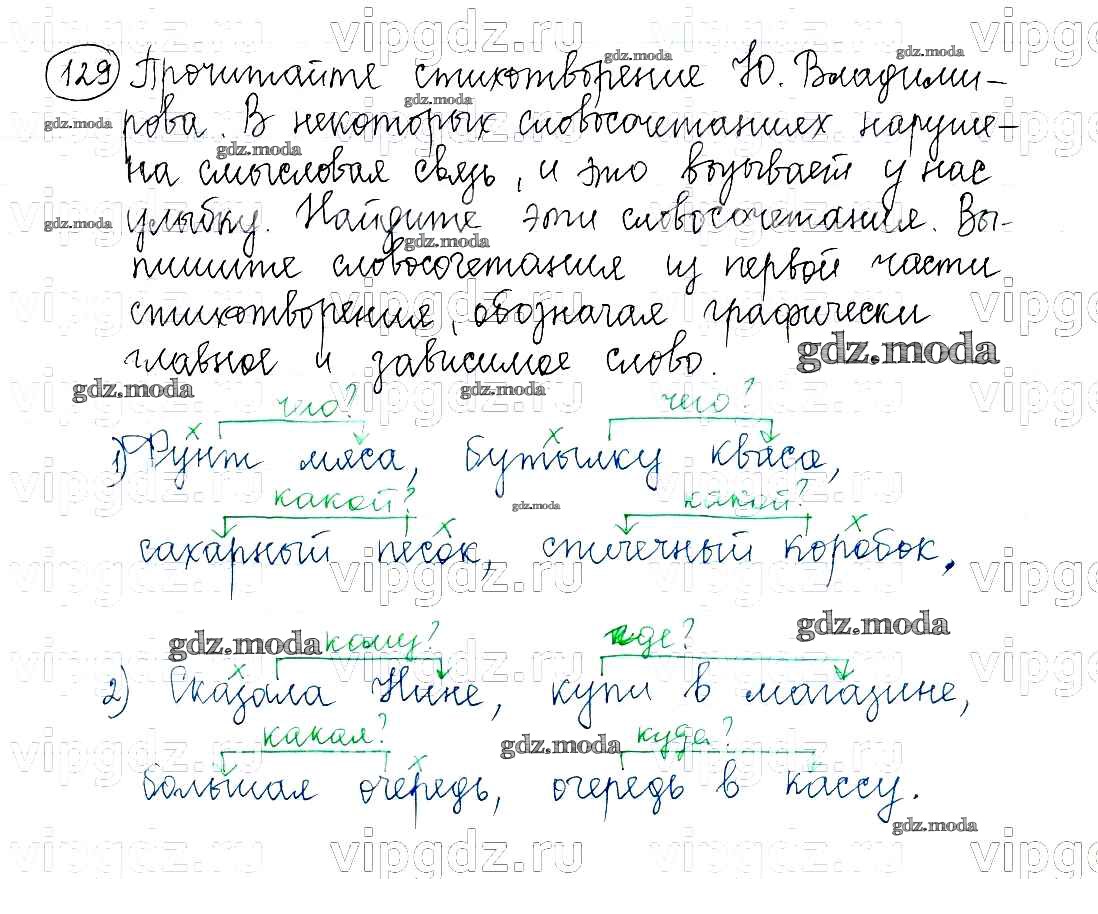 129 Прочитайте стихотворение Ю. Владими-
рова. В некоторых словосочетаниях наруше-
на смысловая связь, и это вызывает у нас
улыбку. Найдите эти словосочетания. Вы-
пишите словосочетания из первой части
стихотворения, обозначая графически
главное и зависимое слово.
gdz.moda
чего? чего?
1) Фунт мяса, бутылку кваса,
какой? какой?
сахарный песок, спичечный коробок.
gdz.moda кому? где? gdz.moda
2) Сказала Нине, купи в магазине,
какая? gdz.moda куда?
большая очередь, очередь в кассу.
gdz.moda
vipgdz.ru